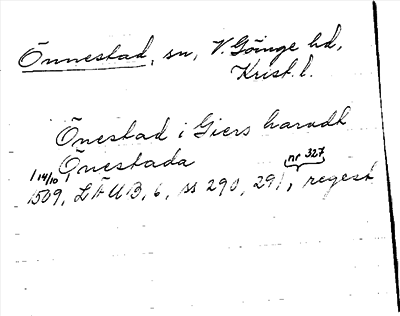 Önnestad, sn, V. Göinge hd,
Krist. l.
Önestad i Giers haradt
Önestada
14/10 1509, LÄUB, 6, ss 290, 291, nr 327, regest